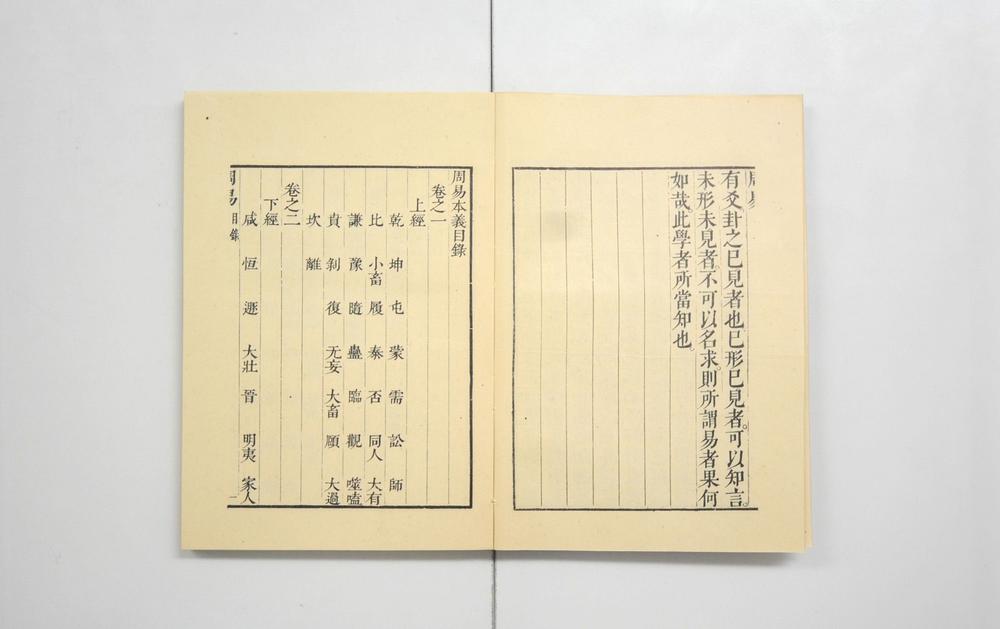 有爻卦之已見者也已形已見者。可以知言。
未形未見者。不可以名求。則所謂易者果何
如哉。此學者所當知也。
周易本義目錄
卷之一
上經
乾 坤 屯 蒙 需 訟 師
比 小畜 履 泰 否 同人 大有
謙 豫 隨 蠱 臨 觀 噬嗑
賁 剝 復 无妄 大畜 頤 大過
坎 離
卷之二
下經
咸 恒 遯 大壯 晉 明夷 家人
周易 目錄 一